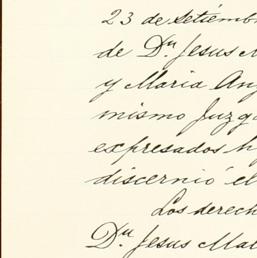 23 de Setiemb
de Dn Jesus M
y Maria Ang
mismo Juzg
expresados h
discernió el
Los derech
Dn Jesus Mar